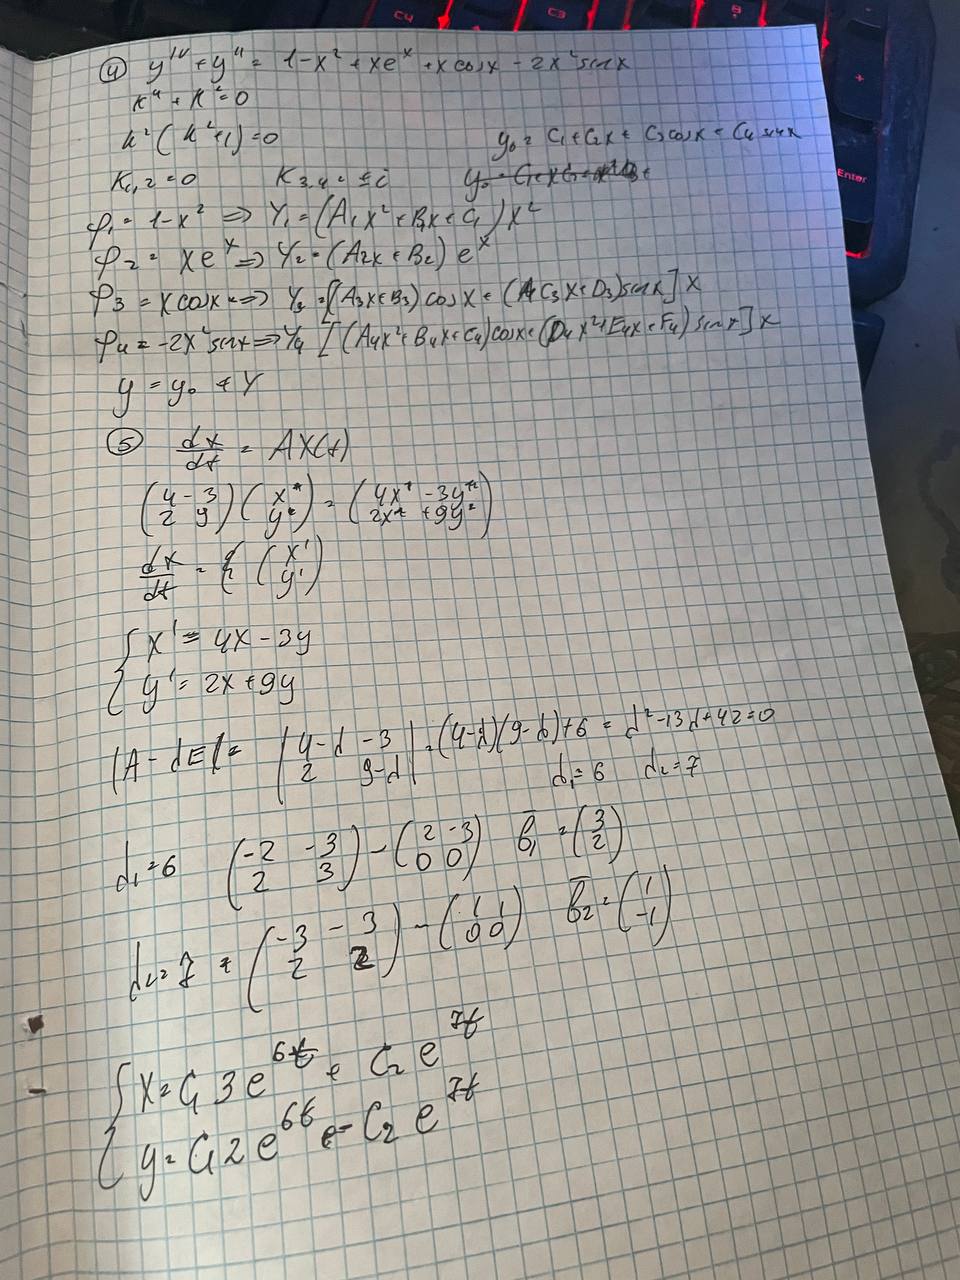 C4
C3
Enter
④ y^IV + y'' = 1-x² + xe^x + x cosx - 2x² sinx
k⁴ + k² = 0
k²(k²+1) = 0
y₀ = C₁ + C₂x + C₃cosx + C₄ sinx
K₁,₂ = 0 K₃,₄ = ±i
φ₁ = 1-x² => Y₁ = (A₁x² + B₁x + C₁)x²
φ₂ = xe^x => Y₂ = (A₂x + B₂)e^x
φ₃ = x cosx => Y₃ = [(A₃x+B₃)cosx + (C₃x+D₃)sinx]x
φ₄ = -2x² sinx => Y₄ [(A₄x²+B₄x+C₄)cosx + (D₄x²+E₄x+F₄)sinx]x
y = y₀ + Y
⑤ dx/dt = AX(t)
(4 -3; 2 9)(x*; y*) = (4x* -3y*; 2x* +9y*)
dx/dt = (x'; y')
{ x' = 4x - 3y
y' = 2x + 9y
|A - dE| = |4-d -3; 2 9-d| = (4-d)(9-d)+6 = d²-13d+42=0
d₁=6 d₂=7
d₁=6 (-2 -3; 2 3) ~ (2 -3; 0 0) b̄₁ = (3; 2)
d₂=7 (-3 -3; 2 2) ~ (1 1; 0 0) b̄₂ = (1; -1)
{ x = C₁3e^6t + C₂e^7t
y = C₁2e^6t - C₂e^7t